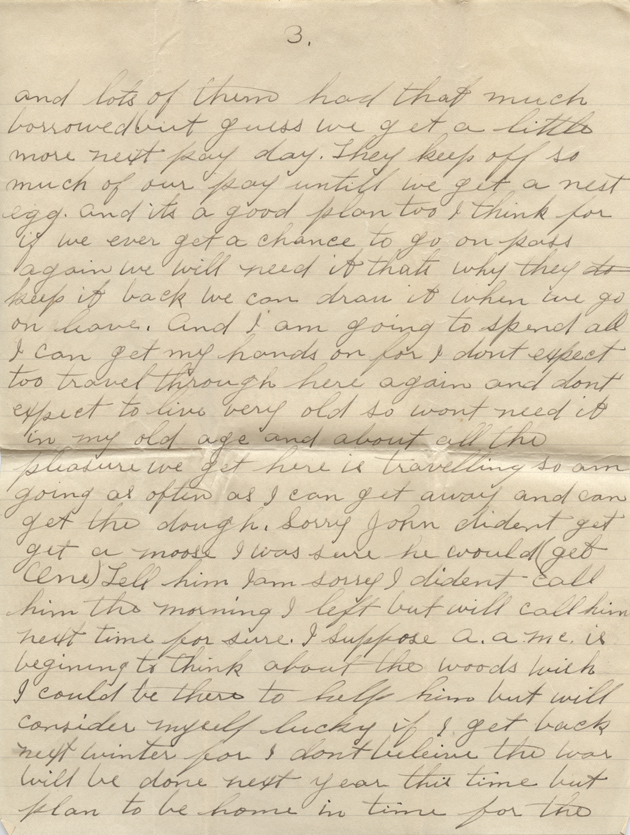 3.
and lots of them had that much
borrowed but guess we get a little
more next pay day. They keep off so
much of our pay untill we get a nest
egg. And its a good plan too I think for
if we ever get a chance to go on pass
again we will need it thats why they to
keep it back we can draw it when we go
on leave. And I am going to spend all
I can get my hands on for I dont expect
too travel through here again and dont
expect to live very old so wont need it
in my old age and about all the
pleasure we get here is travelling so am
going as often as I can get away and can
get the dough. Sorry John dident get
get a moose I was sure he would (get
One) Tell him I am sorry I dident call
him the morning I left but will call him
next time for sure. I suppose a. a mc. is
begining to think about the woods wish
I could be there to help him but will
consider myself lucky if I get back
next winter for I dont beleive the war
will be done next year this time but
plan to be home in time for the